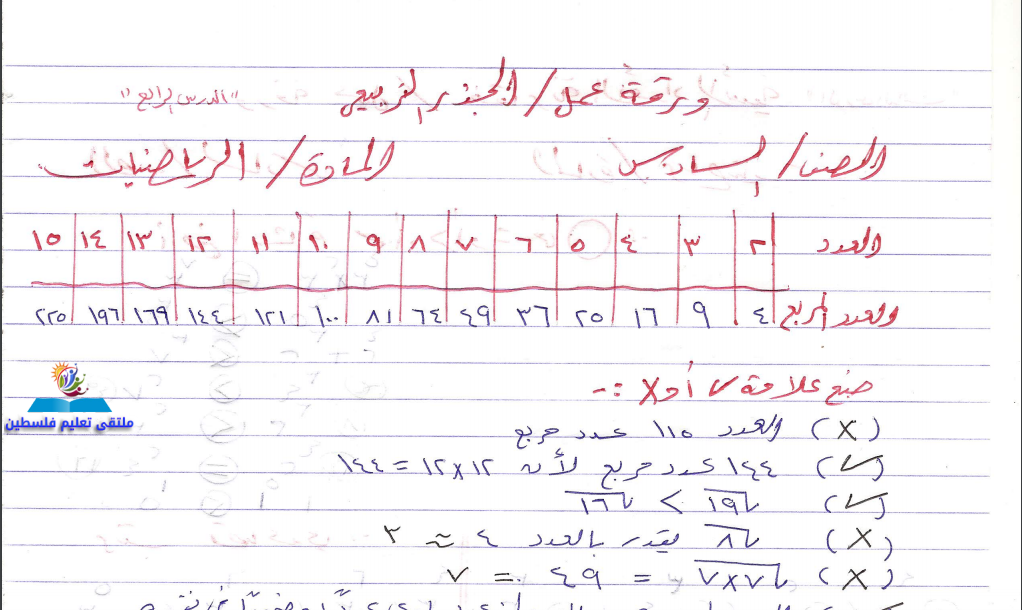 ورقة عمل / الجذر التربيعي "الدرس الرابع"
الصف / السادس المادة / الرياضيات
العدد ٢ ٣ ٤ ٥ ٦ ٧ ٨ ٩ ١٠ ١١ ١٢ ١٣ ١٤ ١٥
العدد المربع ٤ ٩ ١٦ ٢٥ ٣٦ ٤٩ ٦٤ ٨١ ١٠٠ ١٢١ ١٤٤ ١٦٩ ١٩٦ ٢٢٥
ضع علامة ✓ أو X :-
(X) العدد ١١٥ عدد مربع
(✓) ١٤٤ عدد مربع لأن ١٢ × ١٢ = ١٤٤
(✓) √١٩ > √١٦
(X) √٨ يقدر بالعدد ٤ ≈ ٣
(X) √٧×٧ = ٤٩ = ٧
ملتقى تعليم فلسطين